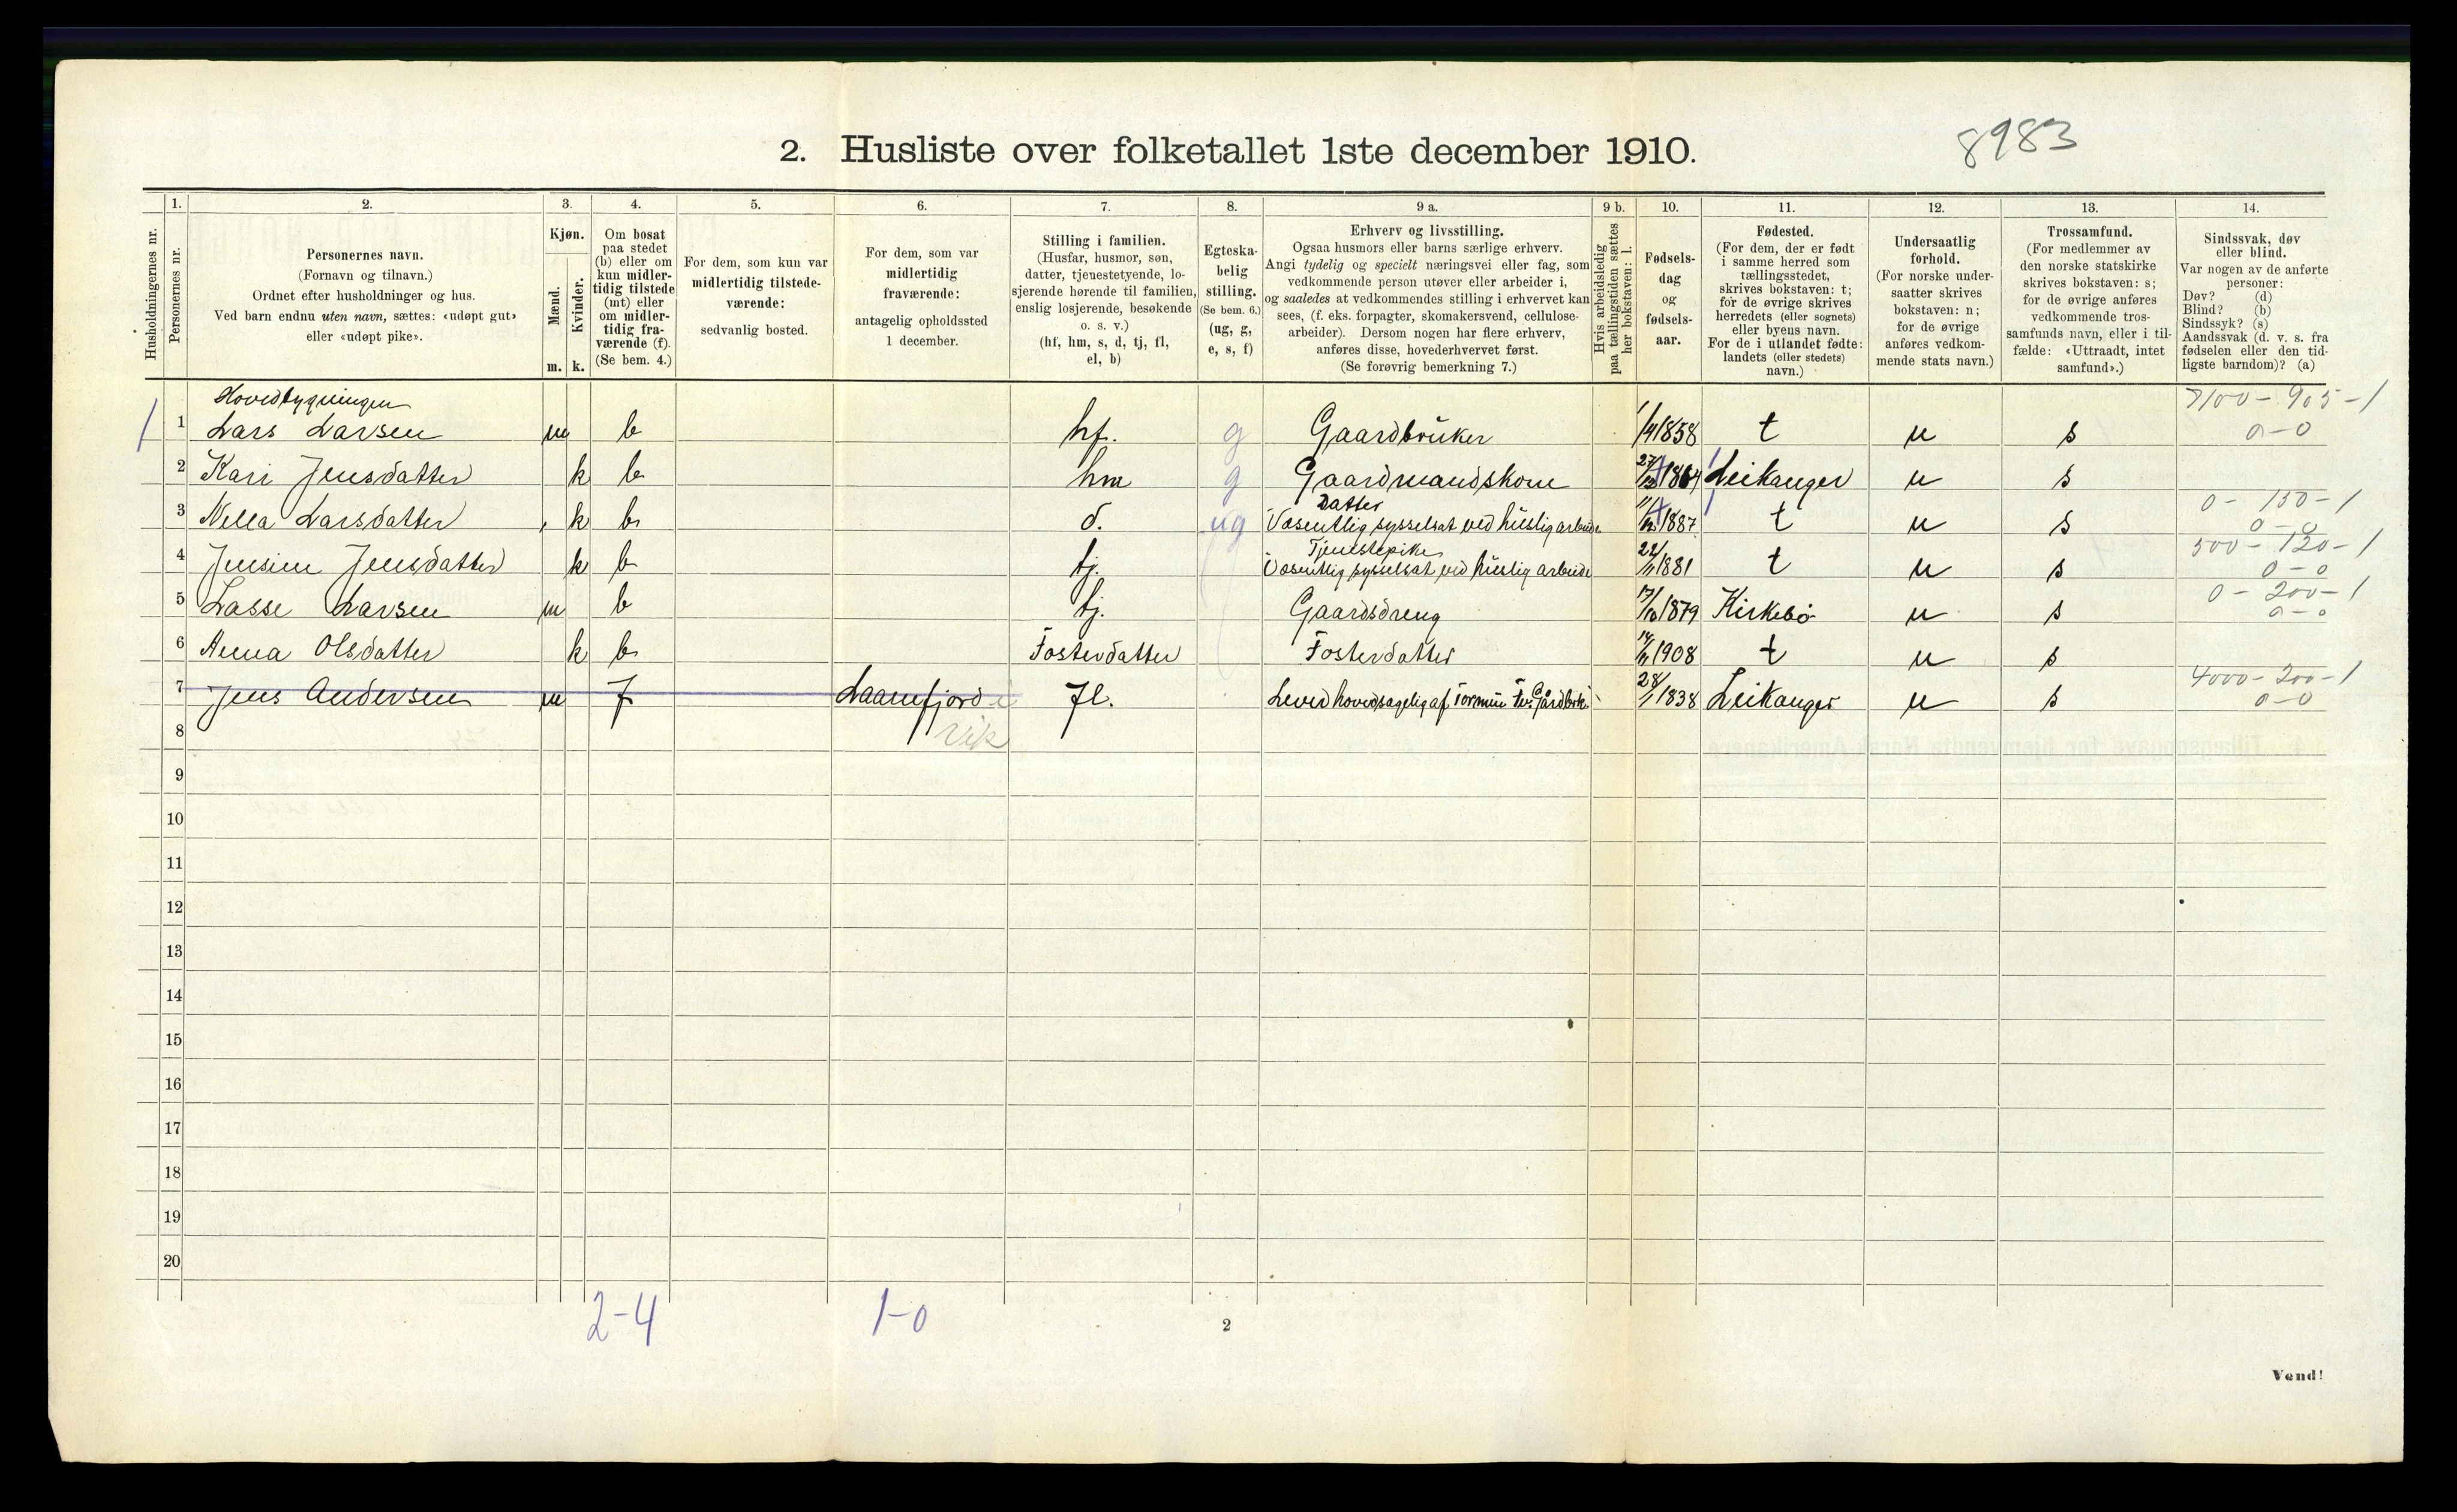 8983
2. Husliste over folketallet 1ste december 1910.
Husholdningernes nr.
1.
Personernes nr.
2.
Personernes navn.
(Fornavn og tilnavn.)
Ordnet efter husholdninger og hus.
Ved barn endnu uten navn, sættes: «udøpt gut»
eller «udøpt pike».
3.
Kjøn.
Mænd.
Kvinder.
m. k.
4.
Om bosat
paa stedet
(b) eller om
kun midler-
tidig tilstede
(mt) eller
om midler-
tidig fra-
værende (f).
(Se bem. 4.)
5.
For dem, som kun var
midlertidig tilstede-
værende:
sedvanlig bosted.
6.
For dem, som var
midlertidig
fraværende:
antagelig opholdssted
1 december.
7.
Stilling i familien.
(Husfar, husmor, søn,
datter, tjenestetyende, lo-
sjerende hørende til familien,
enslig losjerende, besøkende
o. s. v.)
(hf, hm, s, d, tj, fl,
el, b)
8.
Egteska-
belig
stilling.
(Se bem. 6.)
(ug, g,
e, s, f)
9 a.
Erhverv og livsstilling.
Ogsaa husmors eller barns særlige erhverv.
Angi tydelig og specielt næringsvei eller fag, som
vedkommende person utøver eller arbeider i,
og saaledes at vedkommendes stilling i erhvervet kan
sees, (f. eks. forpagter, skomakersvend, cellulose-
arbeider). Dersom nogen har flere erhverv,
anføres disse, hovederhvervet først.
(Se forøvrig bemerkning 7.)
9 b.
Hvis arbeidsledig
paa tællingstiden sættes
her bokstaven: l.
10.
Fødsels-
dag
og
fødsels-
aar.
11.
Fødested.
(For dem, der er født
i samme herred som
tællingsstedet,
skrives bokstaven: t;
for de øvrige skrives
herredets (eller sognets)
eller byens navn.
For de i utlandet fødte:
landets (eller stedets)
navn.)
12.
Undersaatlig
forhold.
(For norske under-
saatter skrives
bokstaven: n;
for de øvrige
anføres vedkom-
mende stats navn.)
13.
Trossamfund.
(For medlemmer av
den norske statskirke
skrives bokstaven: s;
for de øvrige anføres
vedkommende tros-
samfunds navn, eller i til-
fælde: «Uttraadt, intet
samfund».)
14.
Sindssvak, døv
eller blind.
Var nogen av de anførte
personer:
Døv? (d)
Blind? (b)
Sindssyk? (s)
Aandssvak (d. v. s. fra
fødselen eller den tid-
ligste barndom)? (a)
Hovedbygningen
7100 - 905 - 1
1 1 Lars Larsen m b hf. g Gaardbruker 1/4 1858 t n s 0-0
2 Kari Jensdatter k b hm g Gaardmandskone 27/12 1864 Leikanger n s
Datter 0 - 150 - 1
3 Nella Larsdatter k b d. ug Væsentlig sysselsat ved huslig arbeide 11/12 1887 t n s 0-0
Tjenestepike 500 - 120 - 1
4 Jensine Jensdatter k b tj. Væsentlig sysselsat ved huslig arbeide 22/11 1881 t n s 0-0
0 - 200 - 1
5 Lasse Larsen m b tj. Gaardsdreng 17/10 1879 Kirkebø n s 0-0
6 Anna Olsdatter k b Fosterdatter Fosterdatter 14/11 1908 t n s
4000 - 200 - 1
7 Jens Andersen m f fl. Lever hovedsagelig af Formue Gårdbrk. 28/1 1838 Leikanger n s 0-0
8 Vik
9
10
11
12
13
14
15
16
17
18
19
20
2-4 1-0
2
Vend!